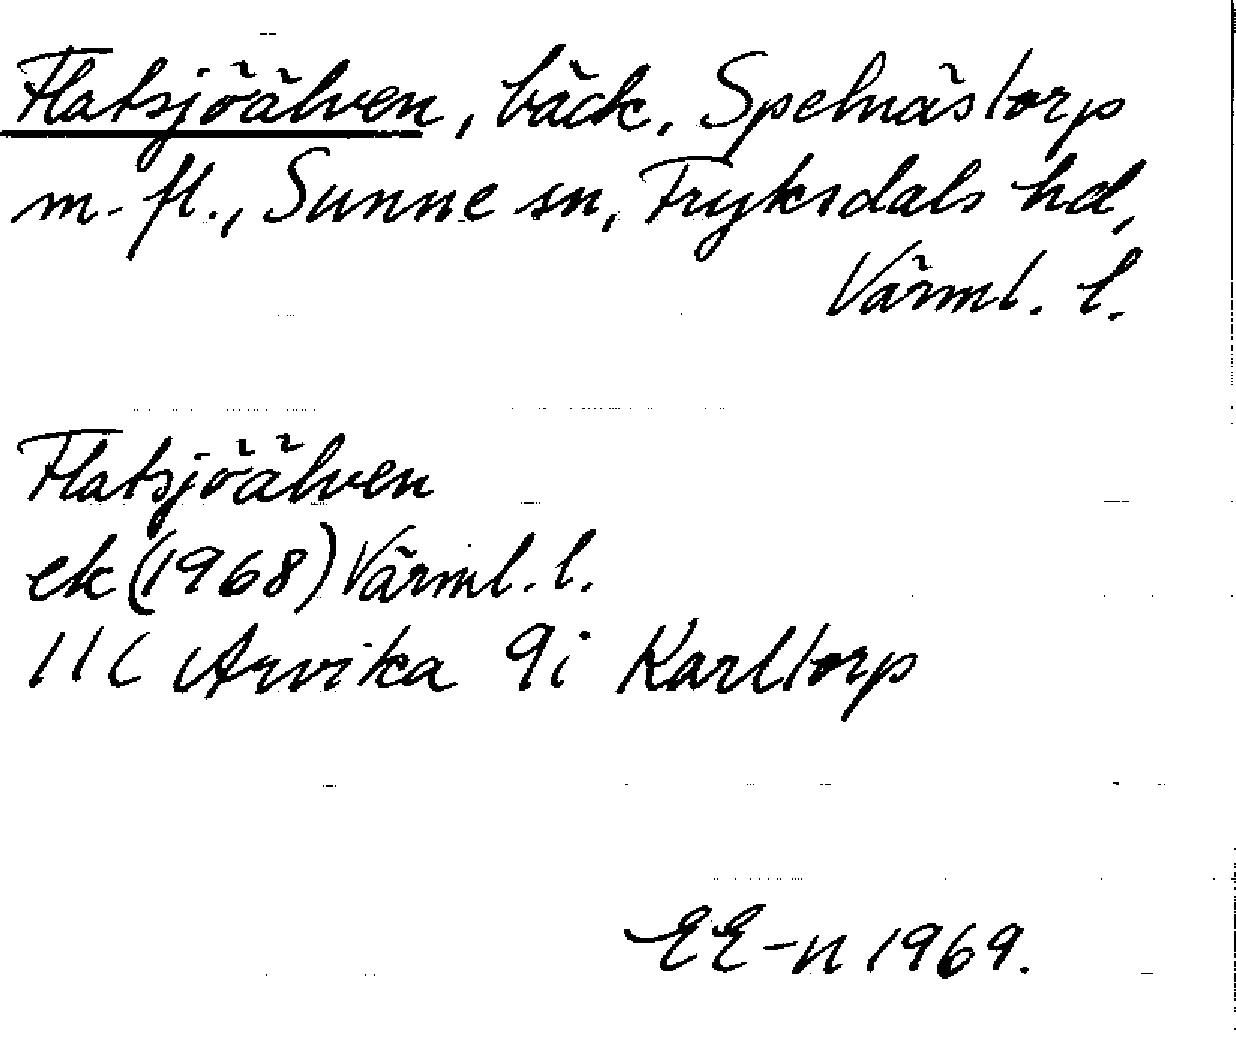 Flatsjöälven, bäck, Spelnästorp
m. fl., Sunne sn, Fryksdals hd,
Värml. l.
Flatsjöälven
ek (1968) Värml. l.
11C Arvika 9i Karltorp
EE-n 1969.